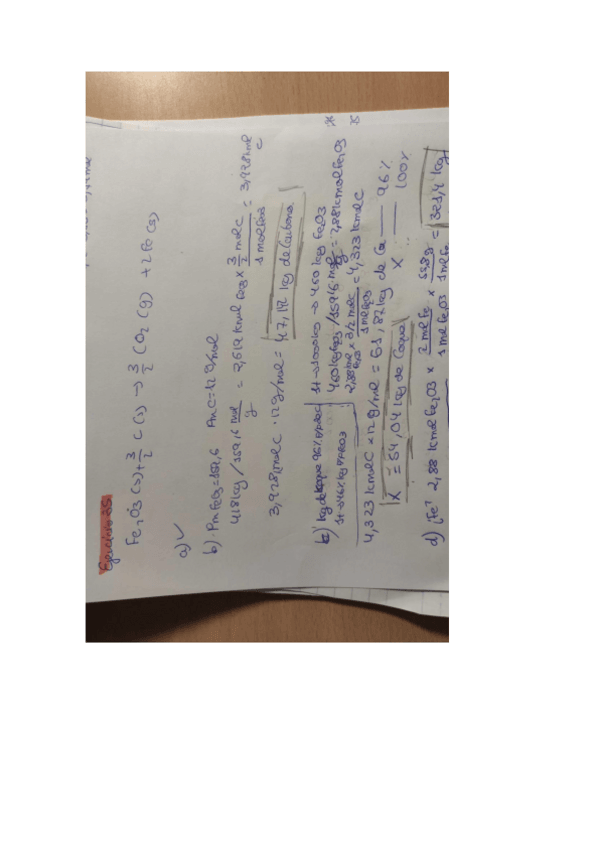 Ejercicio 35
Fe2O3 (s) + 3/2 C (s) → 3/2 CO2 (g) + 2Fe (s)
a) ✓
b) · Pm Fe2O3 = 159,6 Am C = 12 g/mol
418 kg / 159,6 mol/g = 2,619 kmol Fe2O3 × 3/2 mol C / 1 mol Fe2O3 = 3,928 kmol C
3,928 kmol C · 12 g/mol = 47,142 kg de Carbono.
c) kg de coque 96% 1t → 1000 kg → 460 kg Fe2O3
1t → 46% kg Fe2O3 460 kg Fe2O3 / 159,6 mol/g = 2,88 kmol Fe2O3
2,88 kmol Fe2O3 × 3/2 mol C / 1 mol Fe2O3 = 4,323 kmol C
4,323 kmol C × 12 g/mol = 51,87 kg de C — 96%
X = 54,04 kg de Coque X — 100%
d) ¿Fe? 2,88 kmol Fe2O3 × 2 mol Fe / 1 mol Fe2O3 × 55,8 g / 1 mol Fe = 321,4 kg